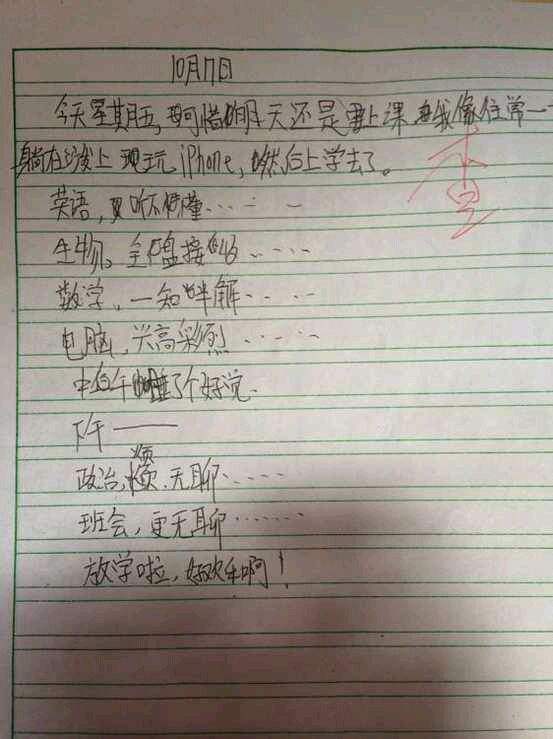 10月17日
今天星期五,可惜明天还是要上课 我像往常一
躺在沙发上 玩iPhone,然后上学去了。
英语,听不懂......
生物,全盘接收......
数学,一知半解......
电脑,兴高彩烈......
中午睡了个好觉.
下午——
政治,烦.无聊......
班会,更无聊......
放学啦,好欢乐啊!